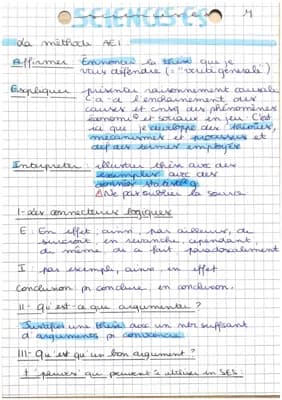 SCIENCES ES
La méthode AEI
Affirmer : Enoncer la thèse que je
vais défendre (= "vérité générale")
Expliquer : présenter raisonnement causale
c'à-d l'enchainement des
causes et cnsq des phénomènes
économq et sociaux en jeu. C'est
ici que je développe des théories,
mécanismes et processus et
def des termes employés
Interpréter : illustrer thèse avec des
exemples avec des
données
⚠ Ne pas oublier la source
I - Les connecteurs logiques
E : En effet, ainsi, par ailleurs, de
en revanche, cependant,
de même, de ce fait, paradoxalement
I : par exemple, ainsi, en effet
Conclusion pr conclure, en conclusion,
II - Qu'est-ce que argumenter ?
Justifier une thèse avec un nbr suffisant
d'arguments pr convaincre
III - Qu'est qu'un bon argument ?
"preuves" qui peuvent ê utiliser en SES :